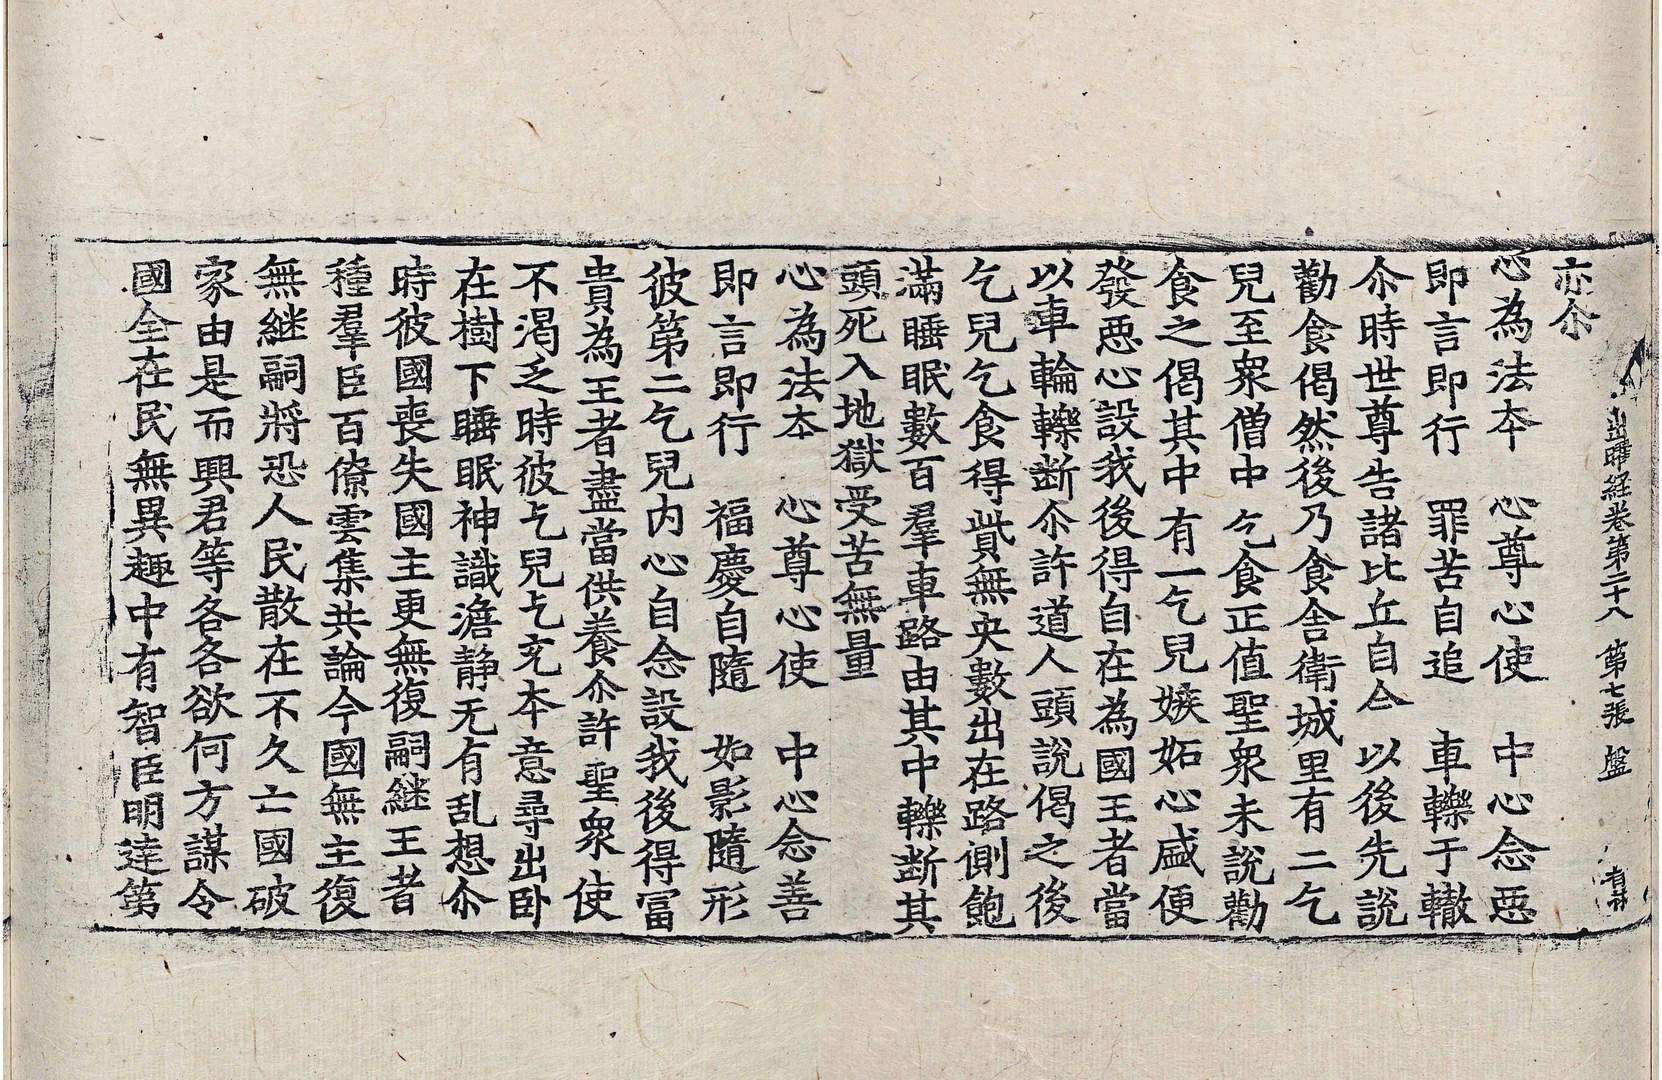 出曜経卷第二十八 第七張 盤
亦尒
心為法夲 心尊心使 中心念惡
即言即行 罪苦自追 車轢于轍
尒時世尊告諸比丘自今以後先說
勸食偈然後乃食舍衛城里有二乞
兒至衆僧中乞食正值聖衆未說勸
食之偈其中有一乞兒嫉妬心盛便
發惡心設我後得自在為國王者當
以車輪轢断尒許道人頭說偈之後
乞兒乞食得貲無央數出在路側飽
滿睡眠數百羣車路由其中轢断其
頭死入地獄受苦無量
心為法夲 心尊心使 中心念善
即言即行 福慶自隨 如影隨形
彼第二乞兒内心自念設我後得冨
貴為王者盡當供養尒許聖衆使
不渴乏時彼乞兒乞充夲意尋出卧
在樹下睡眠神識澹静无有乱想尒
時彼國喪失國主更無復嗣継王者
種羣臣百僚雲集共論今國無主復
無継嗣將恐人民散在不久亡國破
家由是而興君等各各欲何方謀令
國全在民無異趣中有智臣明達第